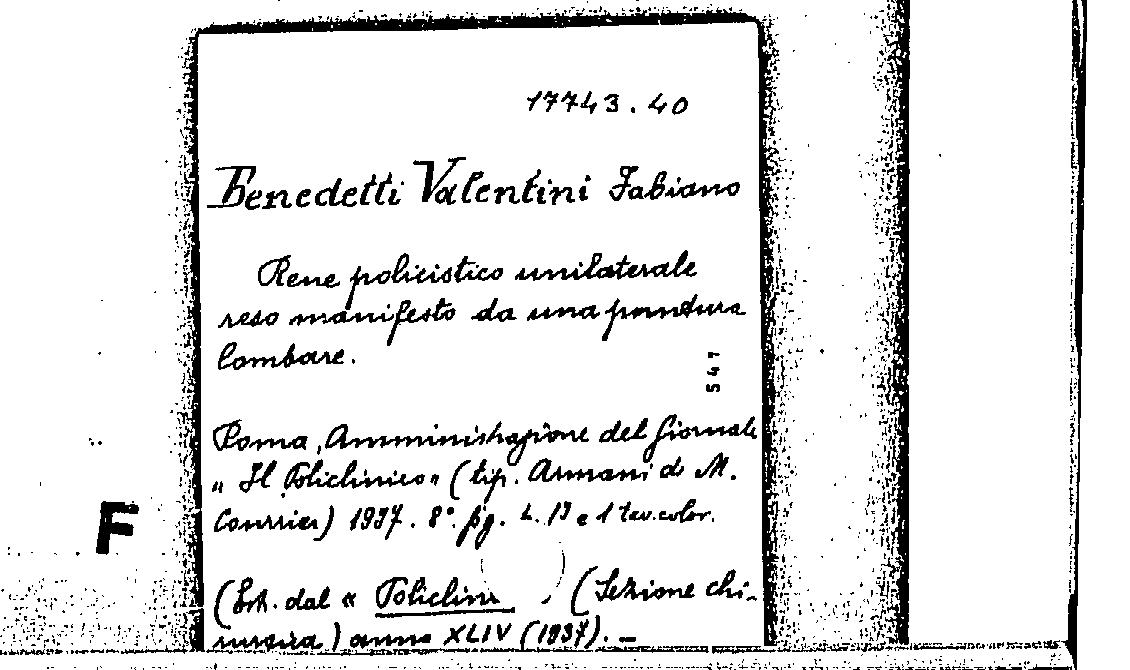 17743.40
Benedetti Valentini Fabiano
Rene policistico unilaterale
reso manifesto da una puntura
lombare.
547
Roma, Amministrazione del Giornale
"Il Policlinico" (tip. Armani di M.
Courrier) 1937. 8°. pg. 13 e 1 tav. color.
F
(Estr. dal « Policlin (Sezione chi-
rurgica) anno XLIV (1937). –